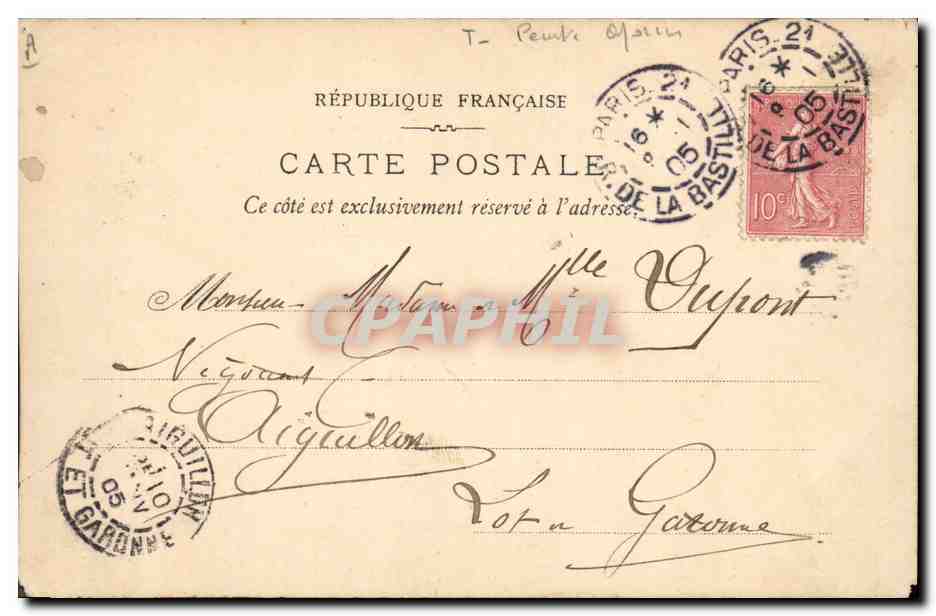 A
T- Peintre
RÉPUBLIQUE FRANÇAISE
CARTE POSTALE
Ce côté est exclusivement réservé à l'adresse.
PARIS. 21 R. DE LA BASTILLE
16 * 9 -1 05
PARIS. 21 R. DE LA BASTILLE
16 * 9 -1 05
10c
Monsieur Madame & Mlle Dupont
Négociant
Aiguillon
Lot & Garonne
CPAPHIL
AIGUILLON
10 05
LOT ET GARONNE